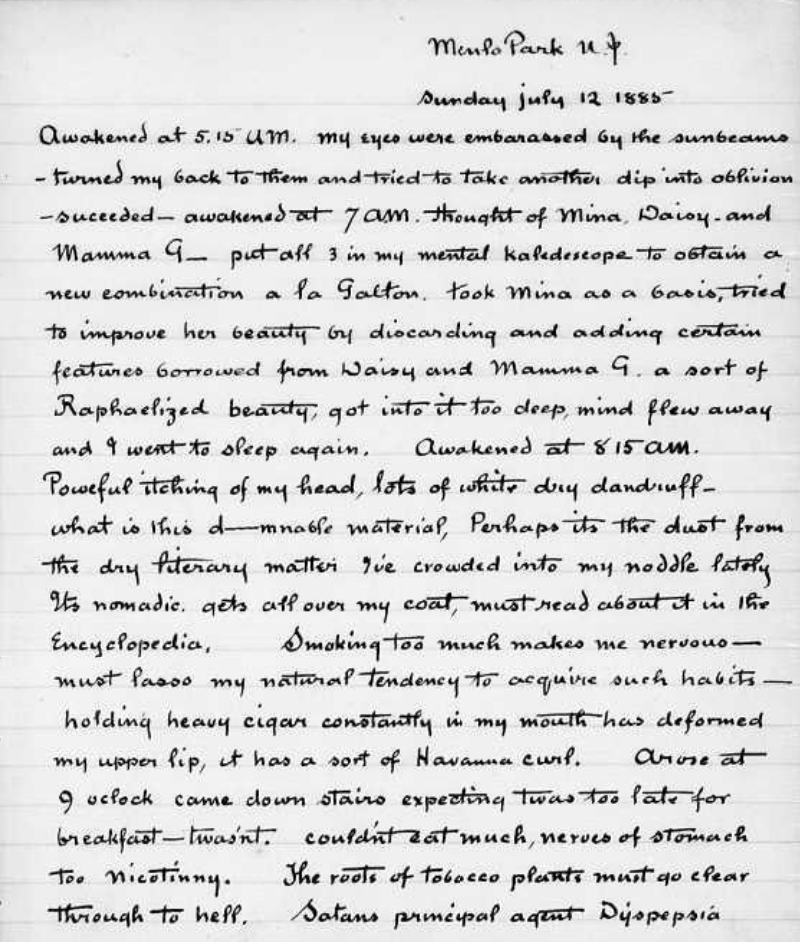 Menlo Park N.J.
Sunday july 12 1885
Awakened at 5.15 AM. my eyes were embarassed by the sunbeams
- turned my back to them and tried to take another dip into oblivion
- succeeded — awakened at 7 AM. thought of Mina, Daisy, and
Mamma G — put all 3 in my mental kaledescope to obtain a
new combination a la Galton. took Mina as a basis, tried
to improve her beauty by discarding and adding certain
features borrowed from Daisy and Mamma G. a sort of
Raphaelized beauty, got into it too deep, mind flew away
and I went to sleep again. Awakened at 8 15 am.
Poweful itching of my head, lots of white dry dandruff –
what is this d—mnable material, Perhaps its the dust from
the dry literary matter I've crowded into my noddle lately
Its nomadic. gets all over my coat, must read about it in the
Encyclopedia. Smoking too much makes me nervous —
must lasso my natural tendency to acquire such habits —
holding heavy cigar constantly in my mouth has deformed
my upper lip, it has a sort of Havanna curl. Arose at
9 oclock came down stairs expecting twas too late for
breakfast — twasn't. couldn't eat much, nerves of stomach
too nicotinny. The roots of tobacco plants must go clear
through to hell. Satans principal agent Dyspepsia